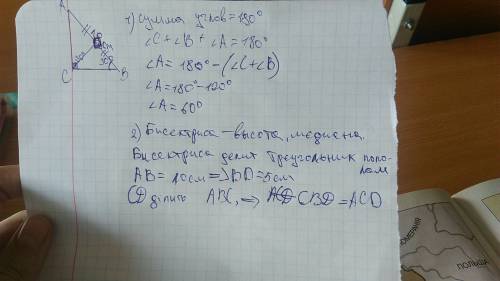 A
C
B
1) Сумма углов = 180°
∠C + ∠B + ∠A = 180°
∠A = 180° - (∠C + ∠B)
∠A = 180° - 120°
∠A = 60°
2) Бисектриса - высота, медиана.
Бисектриса делит треугольник попо-
лом
AB = 10см => BD = 5см
CD ділить ABC, => CBD = ACD
ПОЛЬША